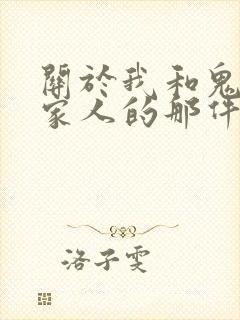 關於我和鬼
家人的那件
洛子雯